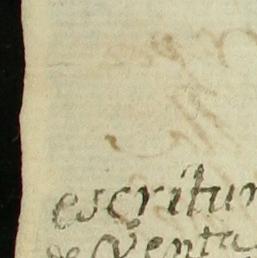 escritur
de Venta